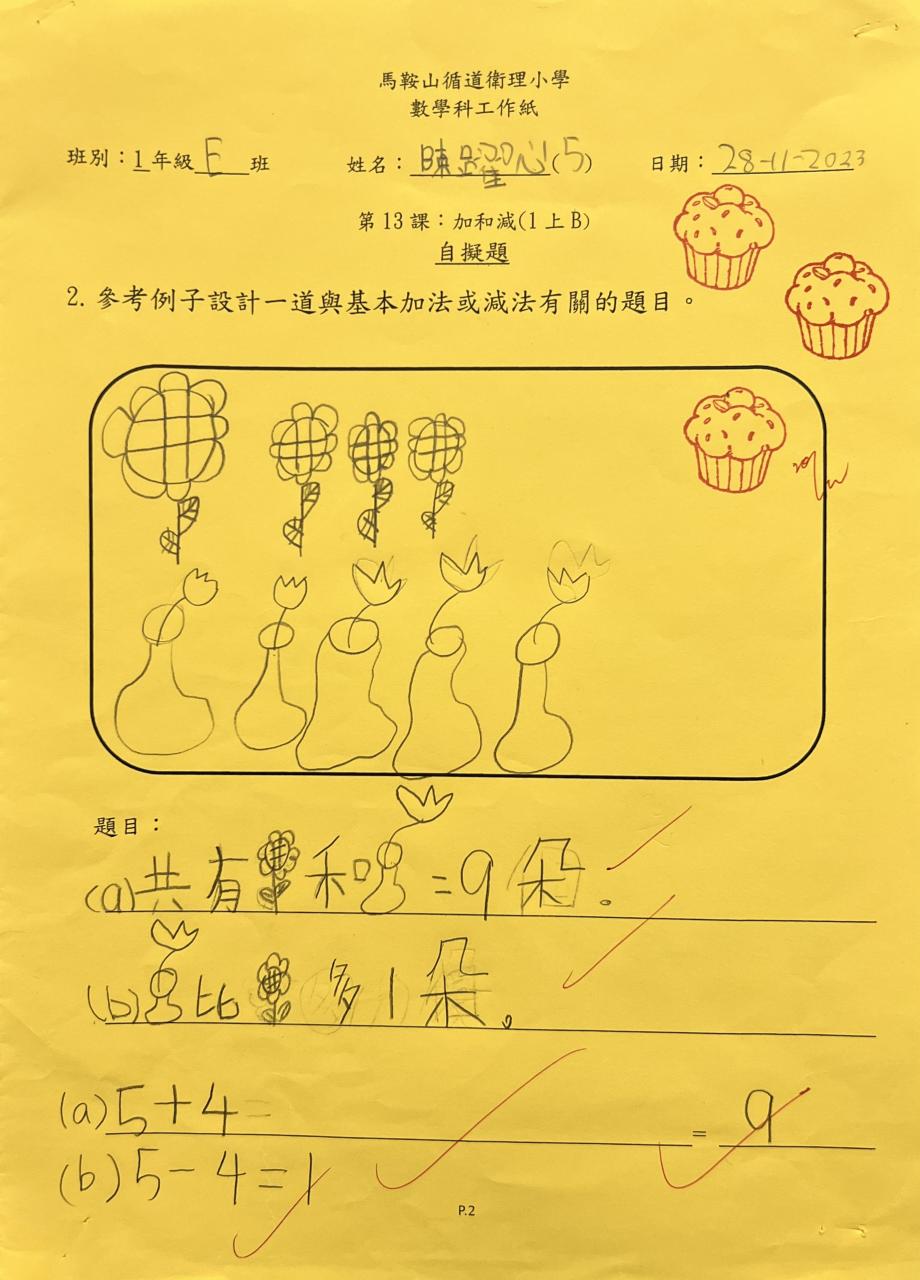 馬鞍山循道衛理小學
數學科工作紙
班別：1年級E班 姓名：陳 心(5) 日期：28-11-2023
第13課：加和減(1上B)
自擬題
2. 參考例子設計一道與基本加法或減法有關的題目。
題目：
(a)共有 和 =9朵。
(b) 比 多1朵。
(a) 5+4= = 9
(b) 5-4=1
P.2